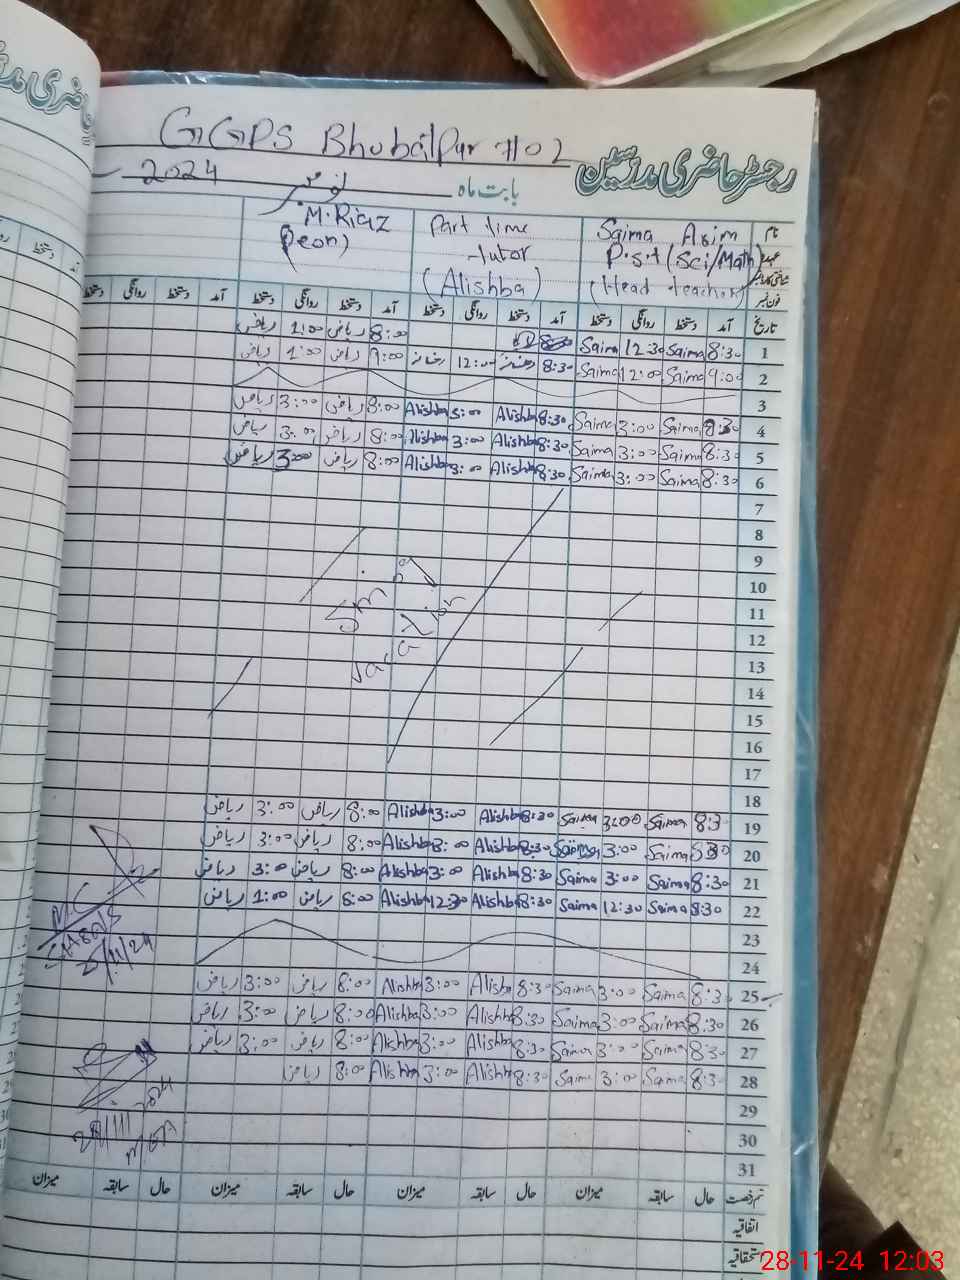 GGPS Bhubalpur #02
رجسٹر حاضری مدرسین
بابت ماہ نومبر 2024
نام Saima Asim Part time M. Riaz
عہدہ P.S.T (Sci/Math) tutor (Peon)
(Head teacher) (Alishba)
فون نمبر
تاریخ آمد دستخط روانگی دستخط آمد دستخط روانگی دستخط آمد دستخط روانگی دستخط آمد دستخط روانگی دستخط
1 8:30 Saima 12:30 Saima 8:00 ریاض 1:00 ریاض
2 9:00 Saima 12:00 Saima 8:30 12:00 9:00 ریاض 1:00 ریاض
3
4 8:30 Saima 3:00 Saima 8:30 Alishba 3:00 Alishba 8:00 ریاض 3:00 ریاض
5 8:30 Saima 3:00 Saima 8:30 Alishba 3:00 Alishba 8:00 ریاض 3:00 ریاض
6 8:30 Saima 3:00 Saima 8:30 Alishba 3:00 Alishba 8:00 ریاض 3:00 ریاض
7
8
9
10
11
12
13
14
15
16
17
Vacation
18
19 8:30 Saima 3:00 Saima 8:30 Alishba 3:00 Alishba 8:00 ریاض 3:00 ریاض
20 8:30 Saima 3:00 Saima 8:30 Alishba 3:00 Alishba 8:00 ریاض 3:00 ریاض
21 8:30 Saima 3:00 Saima 8:30 Alishba 3:00 Alishba 8:00 ریاض 3:00 ریاض
22 8:30 Saima 12:30 Saima 8:30 Alishba 12:30 Alishba 8:00 ریاض 1:00 ریاض
23
24
25 8:30 Saima 3:00 Saima 8:30 Alishba 3:00 Alishba 8:00 ریاض 3:00 ریاض
26 8:30 Saima 3:00 Saima 8:30 Alishba 3:00 Alishba 8:00 ریاض 3:00 ریاض
27 8:30 Saima 3:00 Saima 8:30 Alishba 3:00 Alishba 8:00 ریاض 3:00 ریاض
28 8:30 Saima 3:00 Saima 8:30 Alishba 3:00 Alishba 8:00 ریاض
29
30
31
قسم رخصت حال سابقہ میزان حال سابقہ میزان حال سابقہ میزان حال سابقہ میزان
اتفاقیہ
استحقاقیہ
28-11-24 12:03